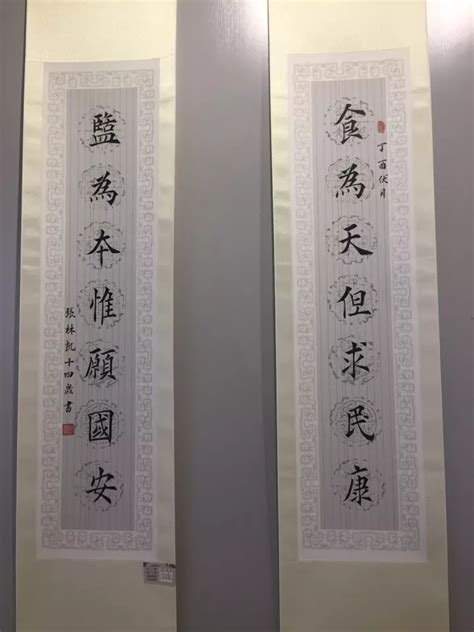 食為天但求民康
丁酉伏月
鹽為本惟願國安
張林凱十四歲書